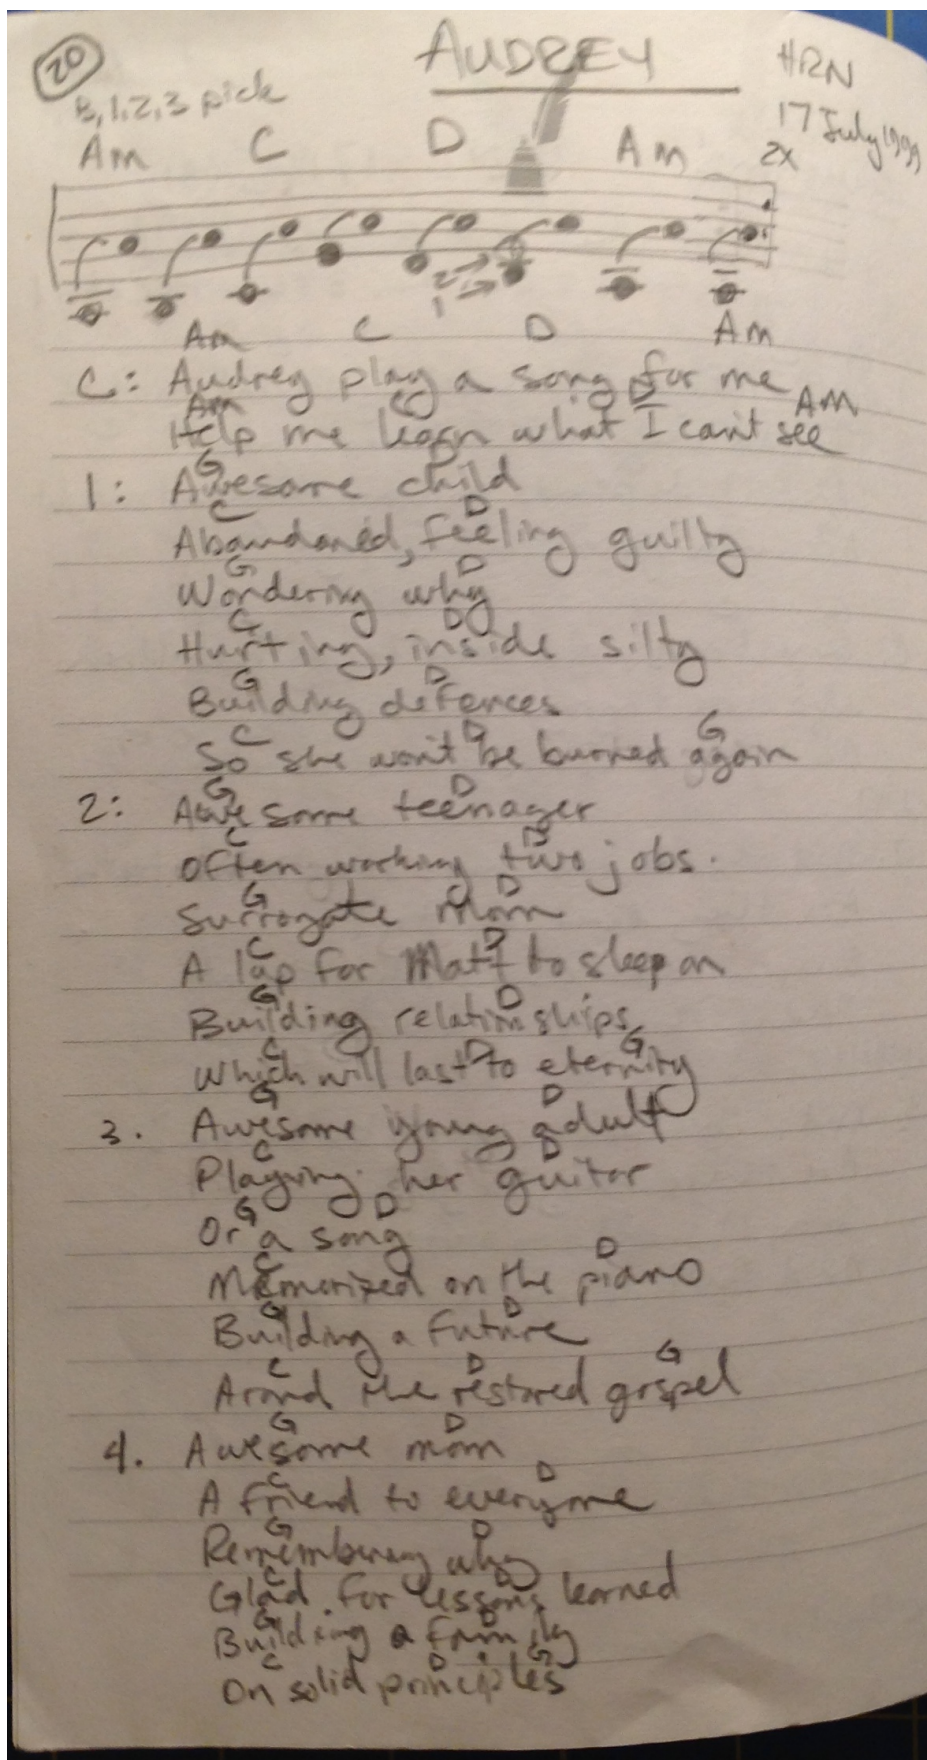 20
AUDREY
HRN
17 July 1999
B, 1, 2, 3 pick
Am C D Am 2x
2
1
Am C D Am
C: Audrey play a song for me
Am C D Am
Help me learn what I can't see
G
1: Awesome child
C D
Abandoned, feeling guilty
G D
Wondering why
C D
Hurting, inside silty
G D
Building defences
C D G
So she won't be burned again
G D
2: Awesome teenager
C D
Often working two jobs.
G D
Surrogate mom
C D
A lap for Matt to sleep on
G D
Building relationships
C D G
Which will last to eternity
G D
3. Awesome young adult
C D
Playing her guitar
G D
Or a song
C D
Memorized on the piano
G D
Building a future
C D G
Around the restored gospel
G D
4. Awesome mom
C D
A friend to everyone
G D
Remembering why
C D
Glad for lessons learned
G D
Building a family
C D G
On solid principles